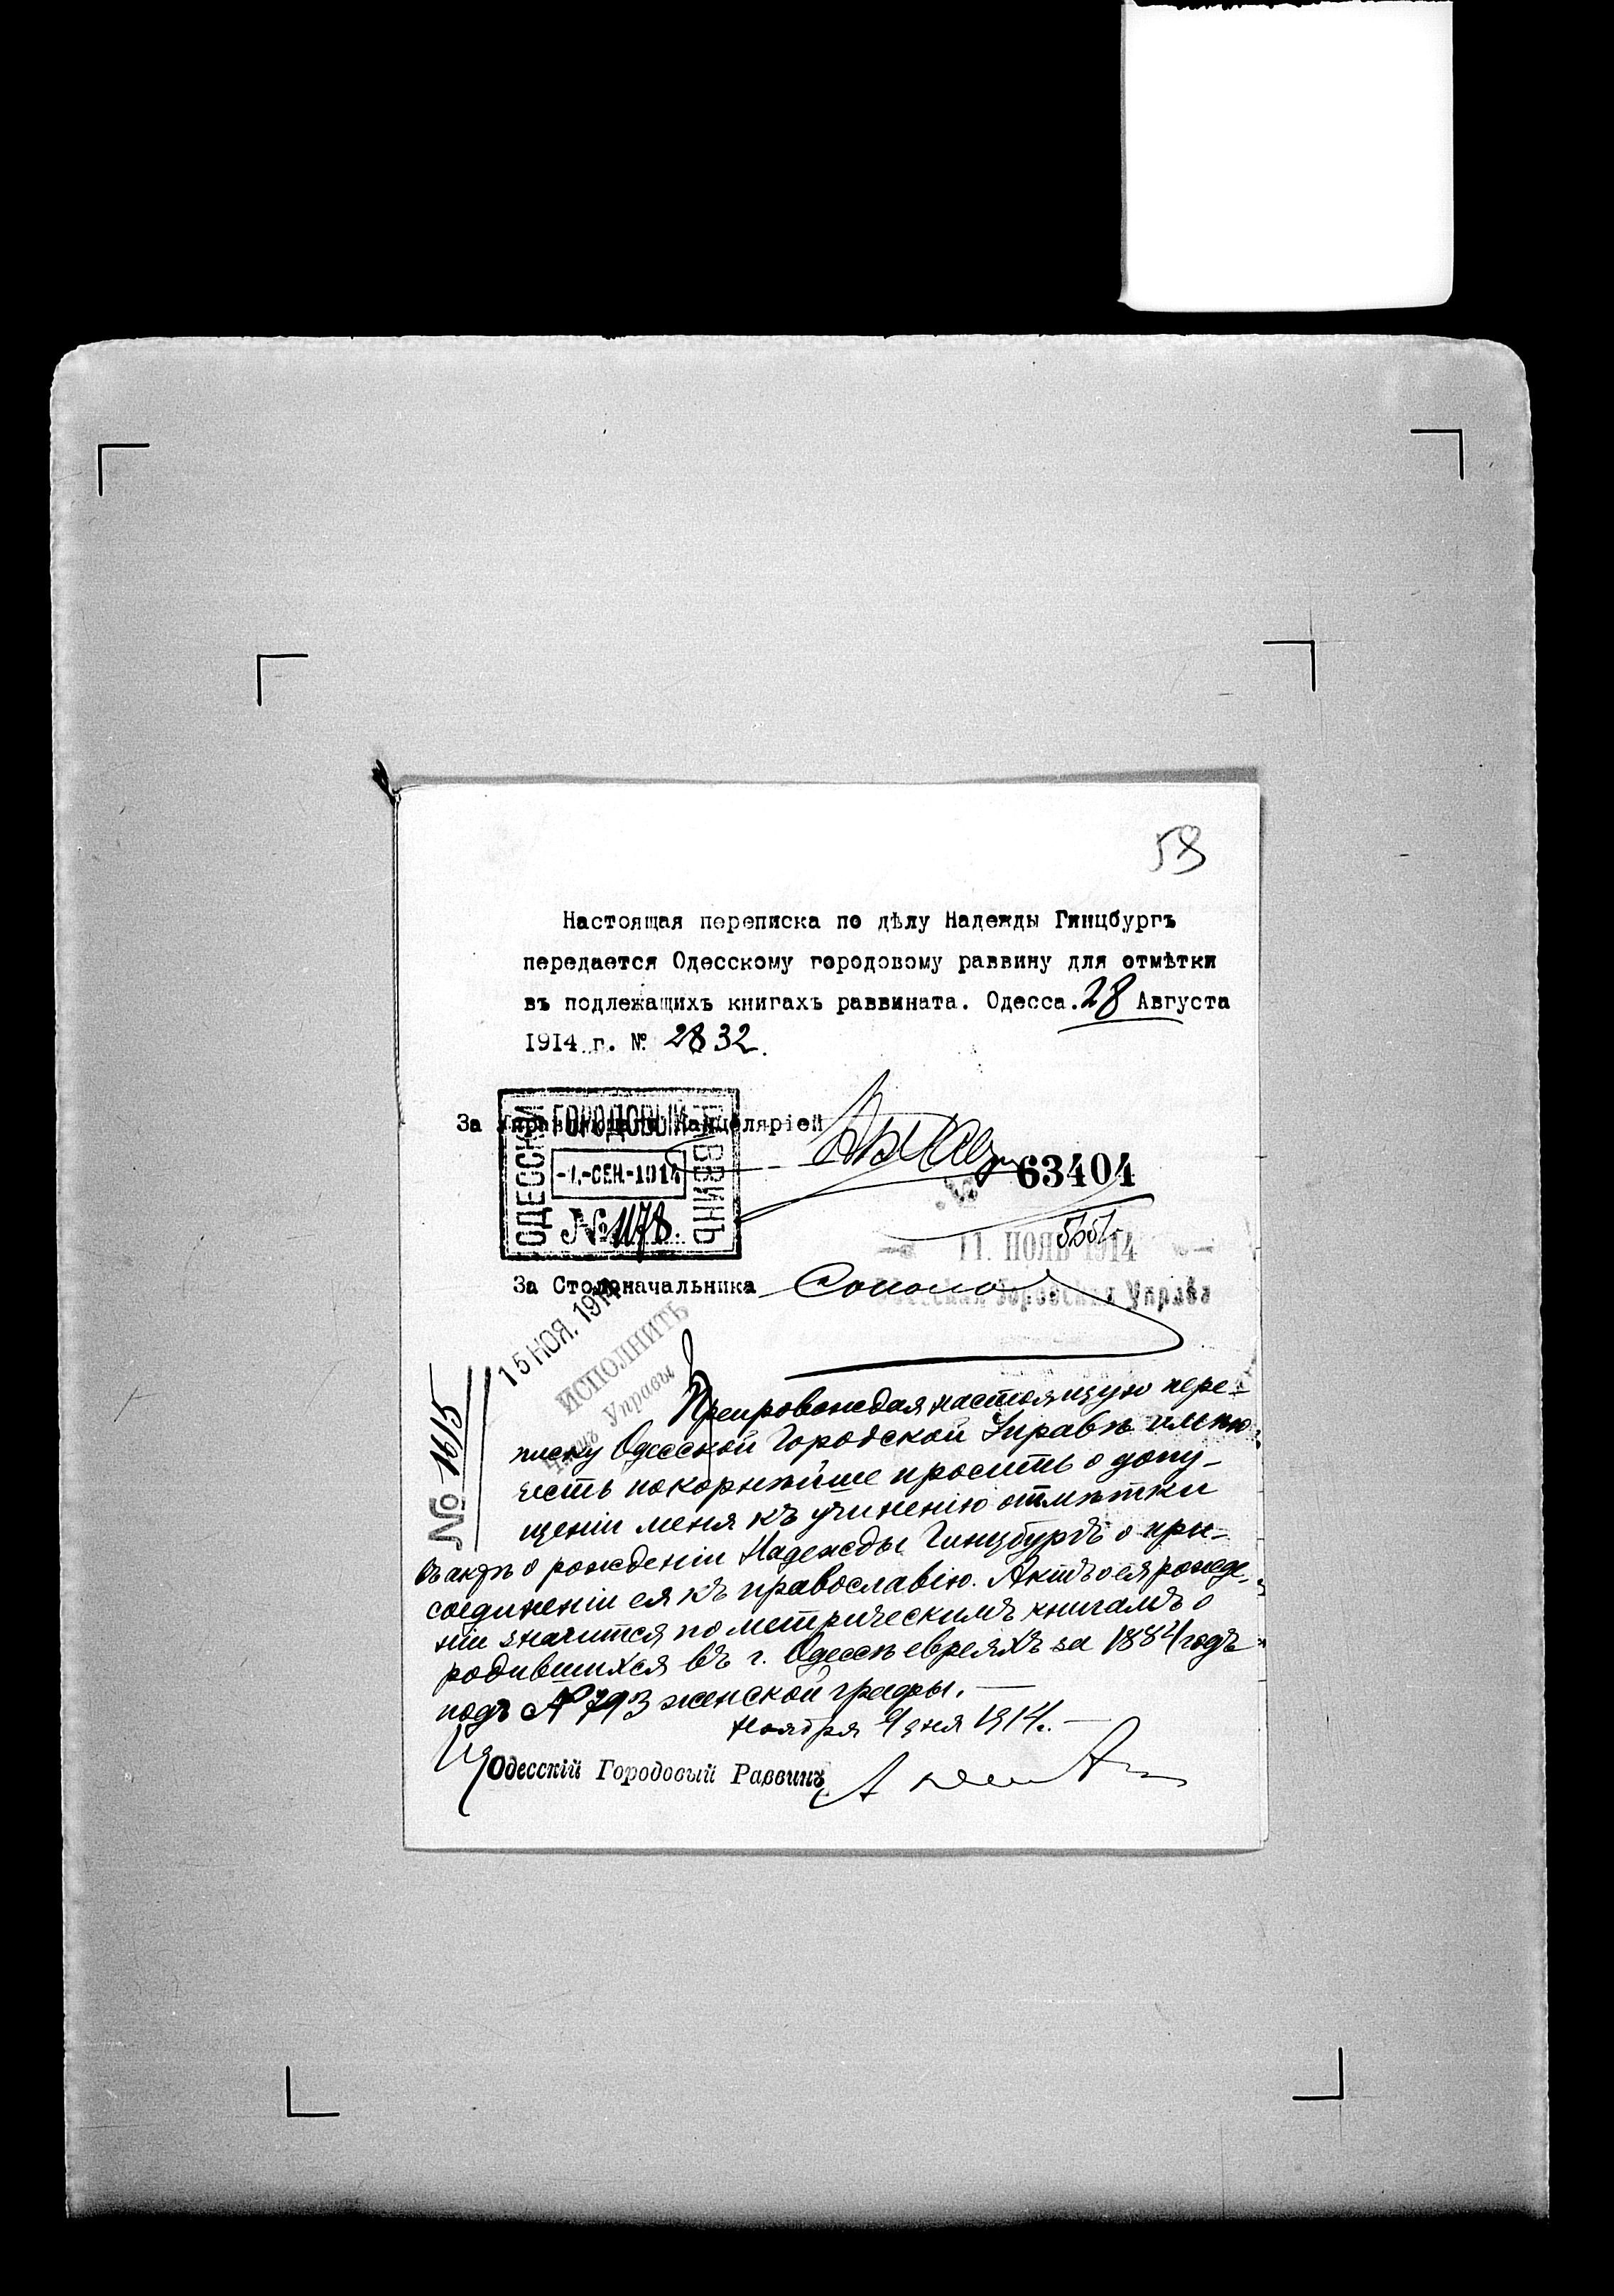 58
Настоящая переписка по дѣлу Надежды Гинцбургъ
передается Одесскому городовому раввину для отмѣтки
въ подлежащихъ книгахъ раввината. Одесса. 28 Августа
1914 г. № 2832.
За Управляющаго Канцеляріей
ОДЕССКІЙ ГОРОДОВЫЙ РАВВИНЪ
-1.-СЕН.-1914
№ 1178.
№ 63404
11. НОЯБ 1914
Одесская Городская Управа
За Столоначальника
15 НОЯ. 1914
ИСПОЛНИТЬ
Управы
№ 1615
Препровождая настоящую пере-
писку Одесской Городской Управѣ имѣю
честь покорнѣйше просить о допу-
щеніи меня къ учиненію отмѣтки
въ актѣ о рожденіи Надежды Гинцбургъ о при-
соединеніи ея къ православію. Актъ о ея рожде-
ніи значится по метрическимъ книгамъ о
родившихся въ г. Одессѣ евреяхъ за 1884 годъ
подъ № 793 женской графы.
Ноября 9 дня 1914.
Одесскій Городовый Раввинъ